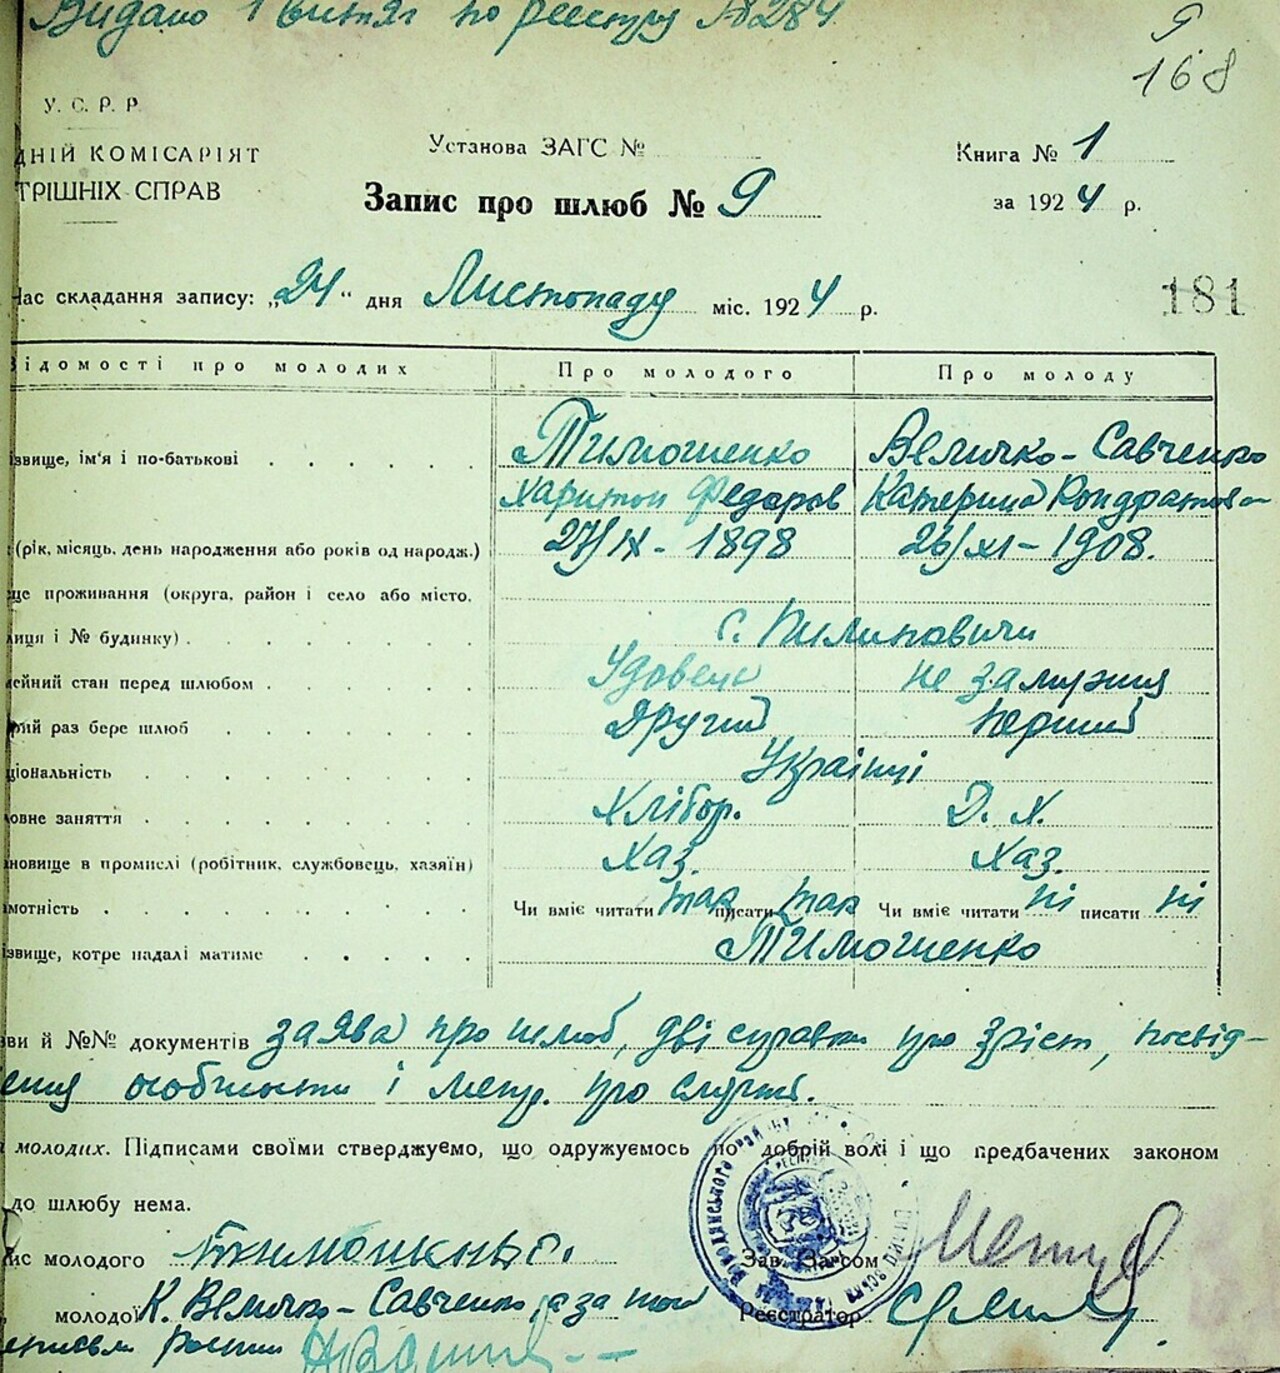 Видано 1 витяг по реєстру № 284
9
168
У. С. Р. Р.
ДНІЙ КОМІСАРІЯТ
ТРІШНІХ СПРАВ
Установа ЗАГС №
Книга № 1
Запис про шлюб № 9
за 1924 р.
Час складання запису: „24“ дня Листопаду міс. 1924 р.
181
ідомості про молодих Про молодого Про молоду
звище, ім'я і по-батькові Тимошенко Величко-Савченко
Харитон Федоров Катерина Кондратова
(рік, місяць, день народження або років од народж.) 27/IX - 1898 26/XI - 1908.
ще проживання (округа, район і село або місто,
лиця і № будинку) с. Пилиповичи
ейний стан перед шлюбом Удовець не замужня
рий раз бере шлюб Другий Перший
ціональність Українці
овне заняття Хлібор. Д. Х.
новище в промислі (робітник, службовець, хазяїн) Хаз. Хаз.
мотність Чи вміє читати так писати так Чи вміє читати ні писати ні
звище, котре надалі матиме Тимошенко
ви й №№ документів заява про шлюб, дві справки про зріст, посвід-
ення особистости і метр. про смерть.
молодих. Підписами своїми стверджуємо, що одружуємось по добрій волі і що предбачених законом
до шлюбу нема.
ис молодого
Зав. Загсом
молодої К. Величко-Савченко, а за
Реєстратор